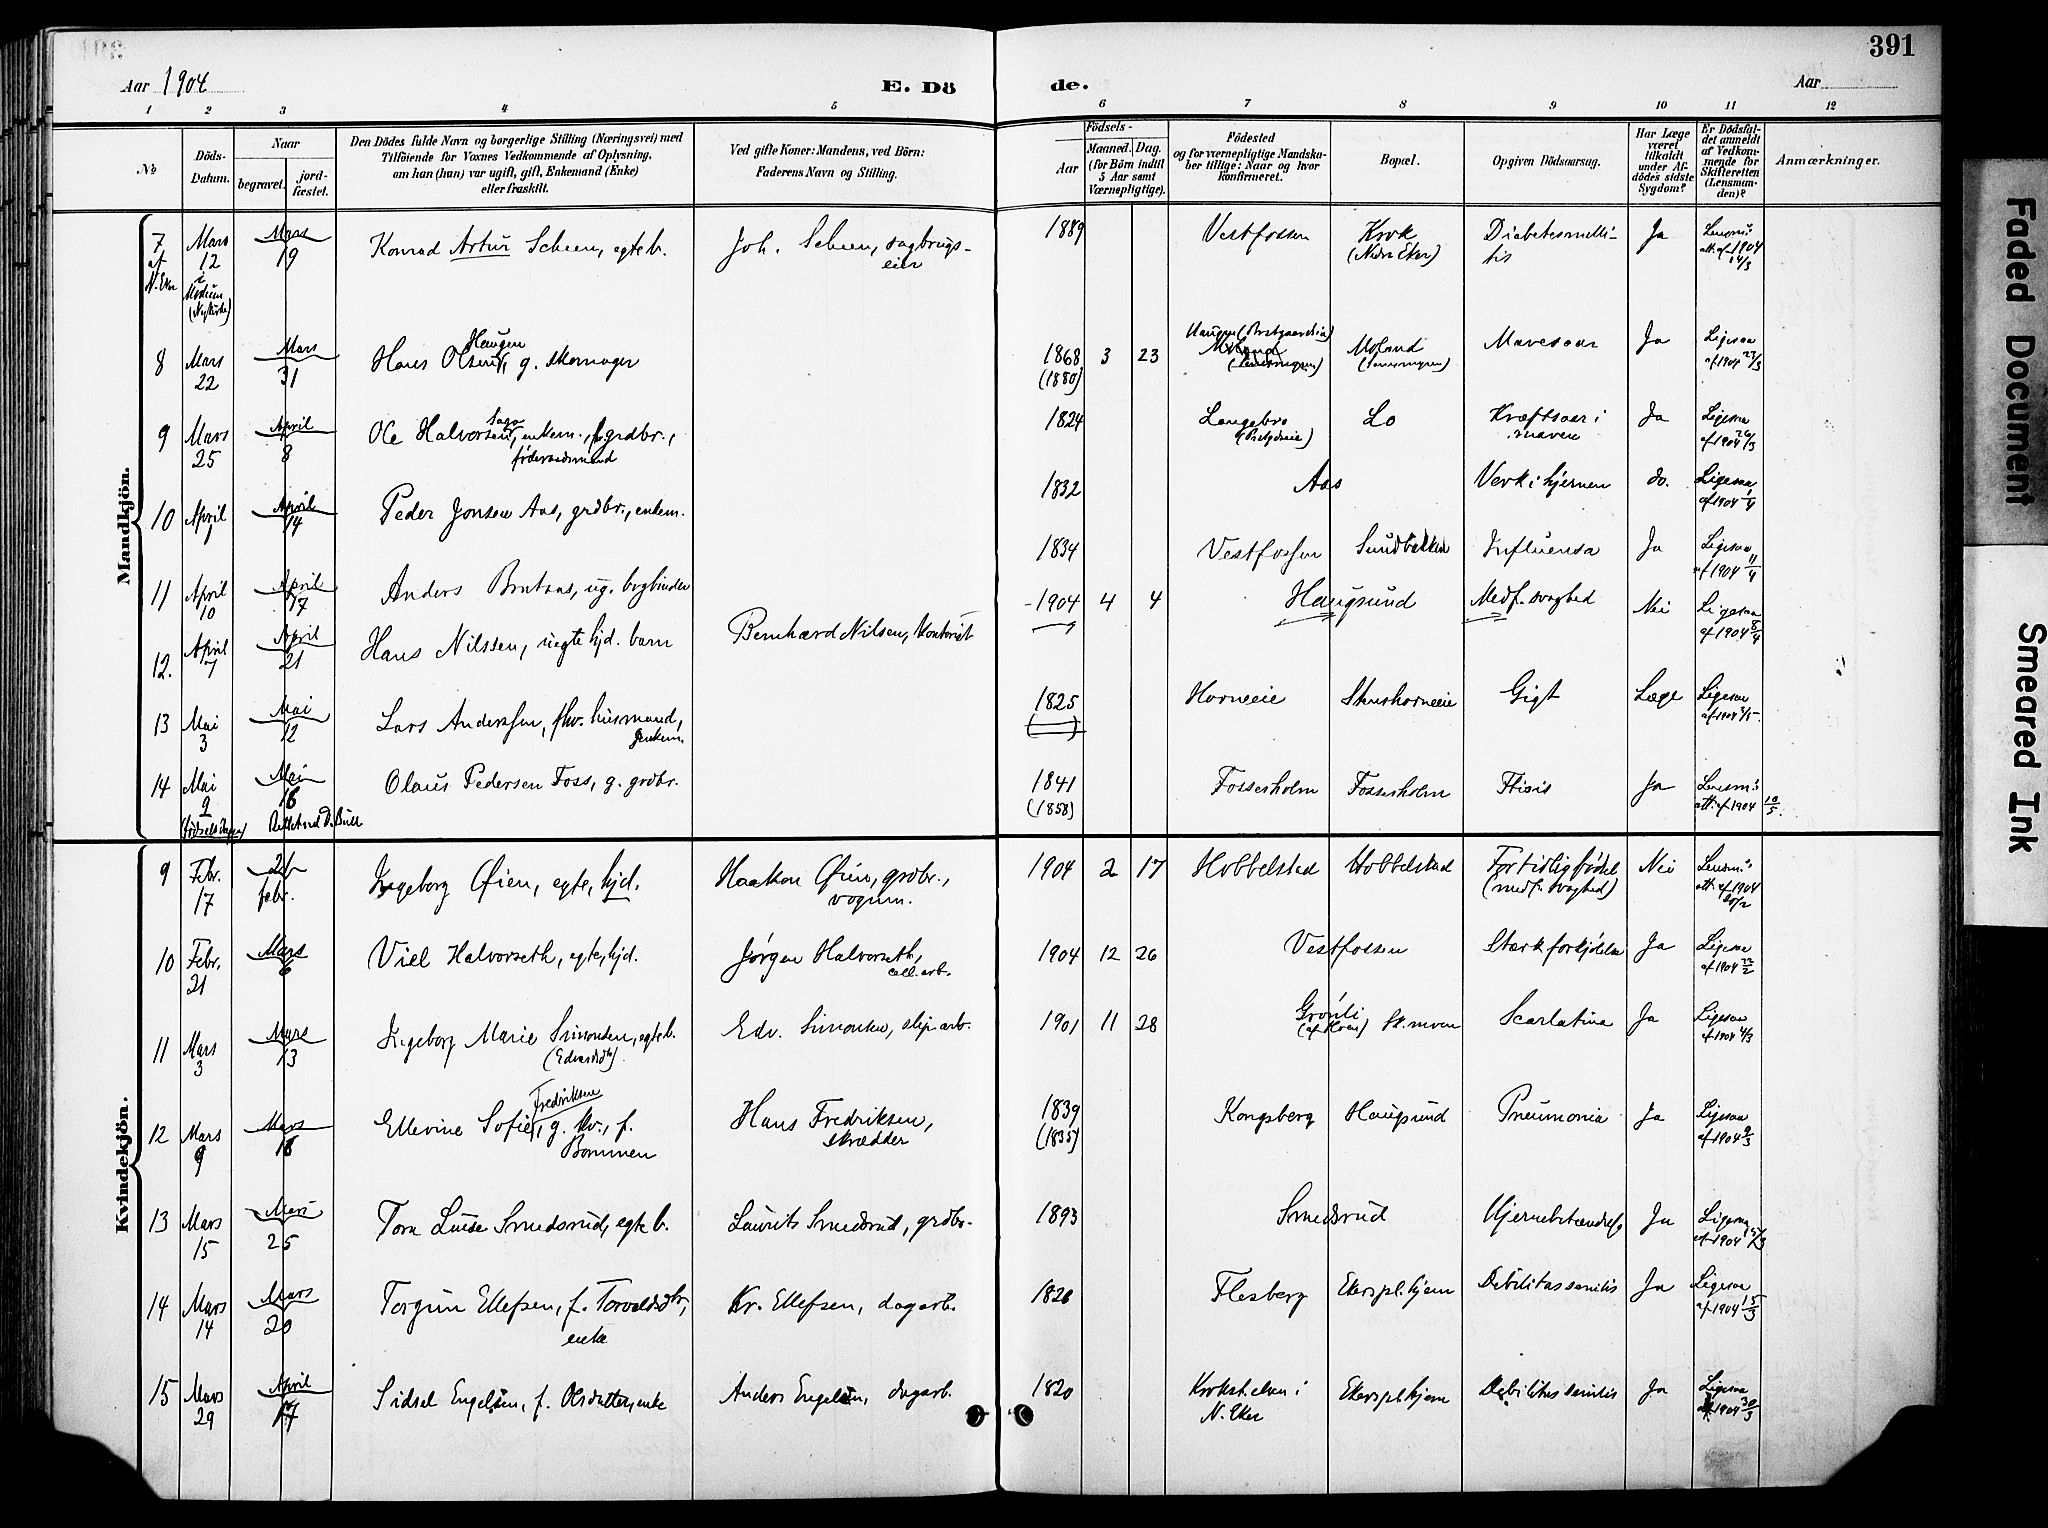 391
Aar 1904
E. Dö
de.
Aar
1 2 3 4 5 6 7 8 9 10 11 12
No
Döds-Datum.
Naar
begravet.
jord-fæstet.
Den Dödes fulde Navn og borgerlige Stilling (Næringsvei) med
Tilföiende for Voxnes Vedkommende af Oplysning,
om han (hun) var ugift, gift, Enkemand (Enke)
eller fraskilt.
Ved gifte Koner: Mandens, ved Börn:
Faderens Navn og Stilling.
Födsels-
Aar
Maaned. Dag.
(for Börn indtil
5 Aar samt
Værnepligtige).
Födested
og for værnepligtige Mandska-
ber tillige: Naar og hvor
konfirmeret.
Bopæl.
Opgiven Dödsaarsag.
Har Læge
været
tilkaldt
under Af-
dödes sidste
Sygdom?
Er Dödsfal-
det anmeldt
af Vedkom-
mende for
Skifteretten
(Lensman-
den)?
Anmærkninger.
Mandkjön.
7 af N. Eker Mars 12 i Modum (Nykirke) Mars 19 Konrad Artur Scheen, egte b. Joh. Scheen, sagbrugs-eier 1889 Vestfossen Krok (Nedre Eker) Diabetes mellitis Ja Lensm's att. af 1904 14/3
8 Mars 22 Mars 31 Hans Olsen Haugen, g. skomager 1868 (1880) 3 23 Haugen Moland Mavesaar Ja Ligesaa af 1904 /3
9 Mars 25 April 8 Ole Halvorsen, enkem., f. grdbr., føderaadsmand 1824 Langebro Lo Kræftsaar i maven Ja Ligesaa af 1904 26/3
10 April 1 April 14 Peder Jonsen Aas, grdbr., enkem. 1832 Aas Verk i hjernen do. Ligesaa af 1904 /4
11 April 10 April 17 Anders Brataas, ug. bogbinder 1834 Vestfossen Sundbakken Influensa Ja Ligesaa af 1904 11/4
12. April 7 April 21 Hans Nilssen, uegte hjd. barn Bernhard Nilsen, kontorist 1904 4 4 Haugsund Medf. svaghed Nei Ligesaa af 1904 8/4
13 Mai 3 Mai 12 Lars Anderssen, fhv. husmand, enkem. 1825 Horneeie Skarshorneeie Gigt Læge Ligesaa af 1904 /5
14 Mai 9 (fødselsdagen) Mai 16 Olaus Pedersen Foss, g. grdbr. 1841 (1858) Fossesholm Fossesholm Ftisis Ja Lensm's att. af 1904 10/5.
Kvindekjön.
9 Febr. 17 26 febr. Ingeborg Øien, egte, hjd. Haakon Øien, grdbr., vognm. 1904 2 17 Hobbelstad Hobbelstad For tidlig fødsel (medf. svaghed) Nei Lensm's att. af 1904 20/2
10 Febr. 21 Mars 6 Viel Halvorseth, egte, hjd. Jørgen Halvorseth, cell. arb. 1904 12 26 Vestfossen Stærk forkjølelse Ja Ligesaa af 1904 22/2
11 Mars 3 Mars 13 Ingeborg Marie Simonsen, egte b. (Edvardsdtr.) Edv. Simonsen, slip. arb. 1901 11 28 Grønli Sk. moen Scarlatina Ja Ligesaa af 1904 4/3
12 Mars 9 Mars 18 Ellevine Sofie Fredriksen, g. kv., f. Bommen Hans Fredriksen, skrædder 1839 (1835) Kongsberg Haugsund Pneumonia Ja Ligesaa af 1904 9/3
13 Mars 15 Mars 25 Tora Luise Smedsrud, egte b. Laurits Smedsrud, grdbr. 1893 Smedsrud Hjernebetændelse Ja Ligesaa af 1904 /3
14 Mars 14 Mars 20 Torgun Ellefsen, f. Torvaldsdtr., enke Kr. Ellefsen, dagarb. 1826 Flesberg Ekers pl. hjem Debilitas senilis Ja Ligesaa af 1904 15/3
15 Mars 29 April 17 Sidsel Engelsen, f. Olsdatter, enke Anders Engelsen, dagarb. 1820 Krokstelven i N. Eker Ekers pl. hjem Debilitas senilis Ja Ligesaa 1904 30/3
Faded Document
Smeared Ink